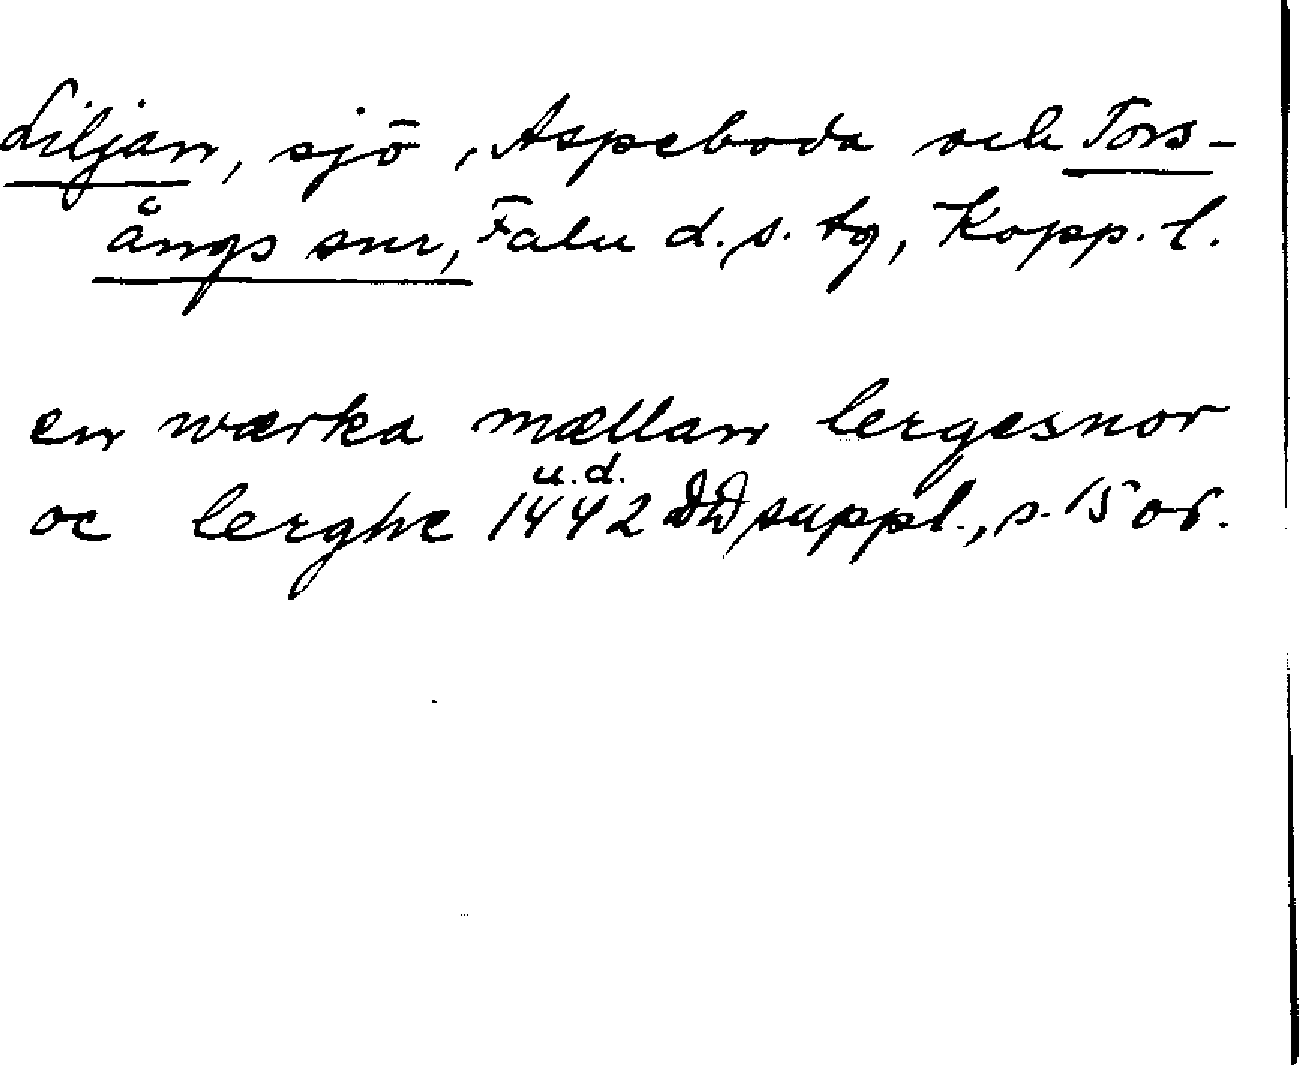 Liljan, sjö, Aspeboda och Tors-
ångs snr, Falu d.s. tg, Kopp. l.
en wærka mællan lergesnor
u.d.
oc lerghe 1442 DD suppl., s. 15 or.